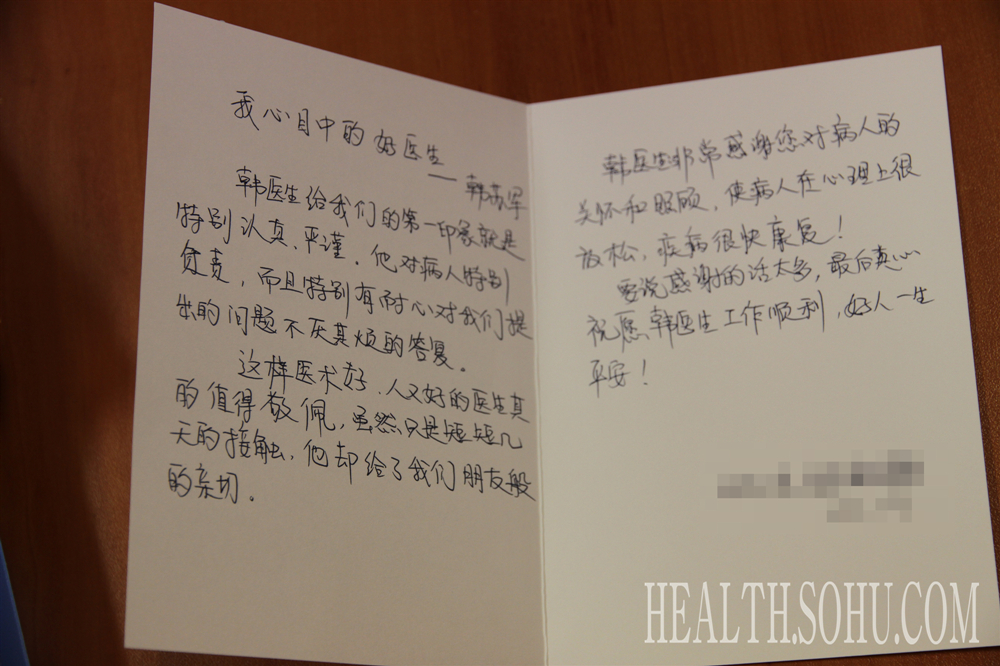 我心目中的好医生
——韩苏军
韩医生给我们的第一印象就是
特别认真、严谨。他对病人特别
负责，而且特别有耐心对我们提
出的问题不厌其烦的答复。
这样医术好、人又好的医生真
的值得敬佩，虽然只是短短几
天的接触，他却给了我们朋友般
的亲切。
韩医生非常感谢您对病人的
关怀和照顾，使病人在心理上很
放松，疾病很快康复！
要说感谢的话太多，最后真心
祝愿韩医生工作顺利，好人一生
平安！
HEALTH.SOHU.COM